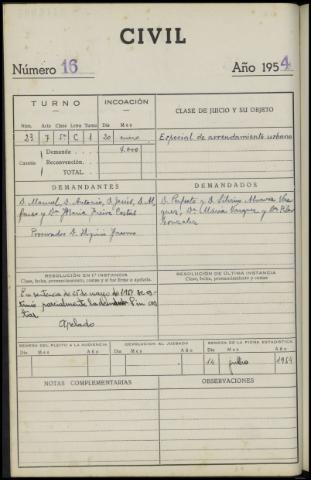 CIVIL
Número 16 Año 1954
TURNO INCOACIÓN CLASE DE JUICIO Y SU OBJETO
Núm. Arto Clase Letra Tomo Día Mes
23 7 5ª C 1 20 enero Especial de arrendamiento urbano
Cuantía: Demanda 9.000
Reconvención.
TOTAL
DEMANDANTES DEMANDADOS
D. Manuel, D. Antonio, D. Jesús, D. Alfonso y Dª María
Procurador D. Higinio
D. Perfecto y D. Silvino Alvarez Vazquez, Dª María Vazquez y Dª Pilar Gonzalez
RESOLUCIÓN EN 1.ª INSTANCIA
Clase, fecha, pronunciamiento, costas y si fue firme o apelada.
RESOLUCIÓN DE ÚLTIMA INSTANCIA
Clase, fecha, pronunciamiento y costas
En sentencia de de mayo de 1954 se estimó parcialmente la demanda sin costas
Apelado
REMESA DEL PLEITO A LA AUDIENCIA DEVOLUCION AL JUZGADO REMESA DE LA FICHA ESTADÍSTICA
Día Mes Año Día Mes Año Día Mes Año
14 julio 1954
NOTAS COMPLEMENTARIAS OBSERVACIONES